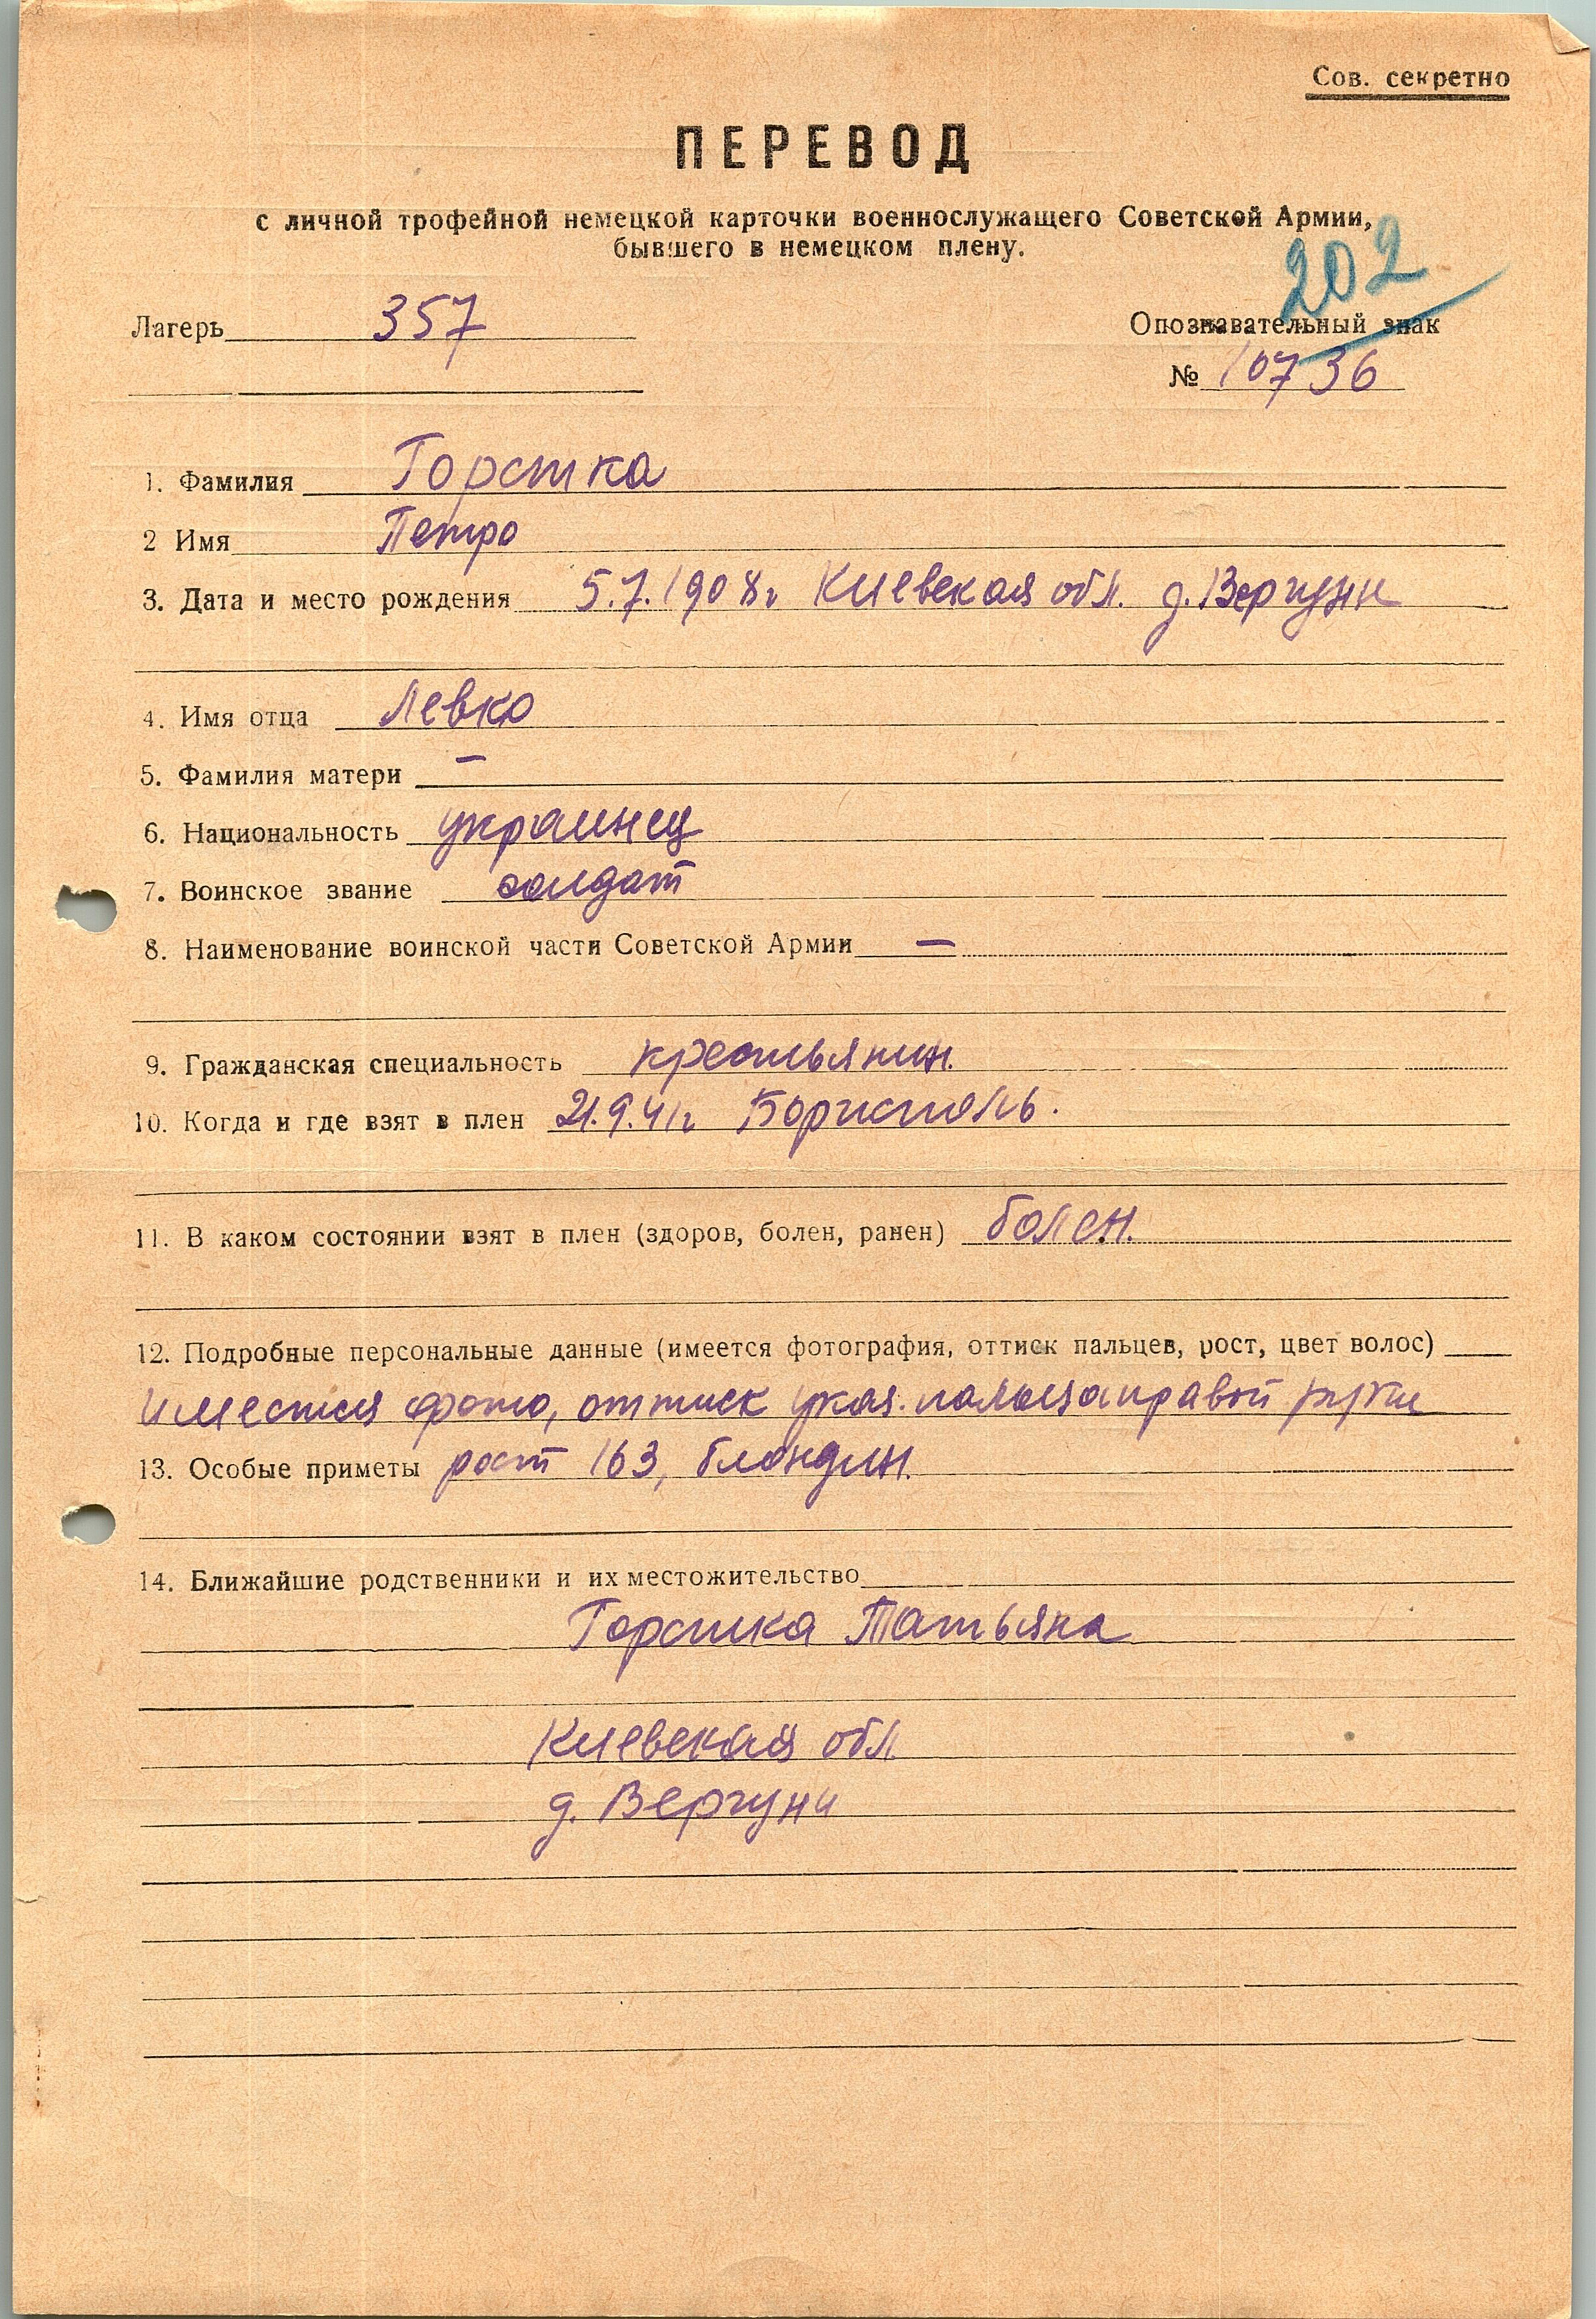 Сов. секретно
ПЕРЕВОД
с личной трофейной немецкой карточки военнослужащего Советской Армии,
бывшего в немецком плену.
202
Лагерь 357
Опознавательный знак
№ 10736
1. Фамилия Горстка
2 Имя Петро
3. Дата и место рождения 5.7.1908г Киевская обл. д. Вергуни
4. Имя отца Левко
5. Фамилия матери —
6. Национальность украинец
7. Воинское звание солдат
8. Наименование воинской части Советской Армии —
9. Гражданская специальность крестьянин.
10. Когда и где взят в плен 21.9.41г Борисполь.
11. В каком состоянии взят в плен (здоров, болен, ранен) болен.
12. Подробные персональные данные (имеется фотография, оттиск пальцев, рост, цвет волос)
имеется фото, оттиск указ. пальца правой руки
13. Особые приметы рост 163, блондин.
14. Ближайшие родственники и их местожительство
Горстка Татьяна
Киевская обл.
д. Вергуни